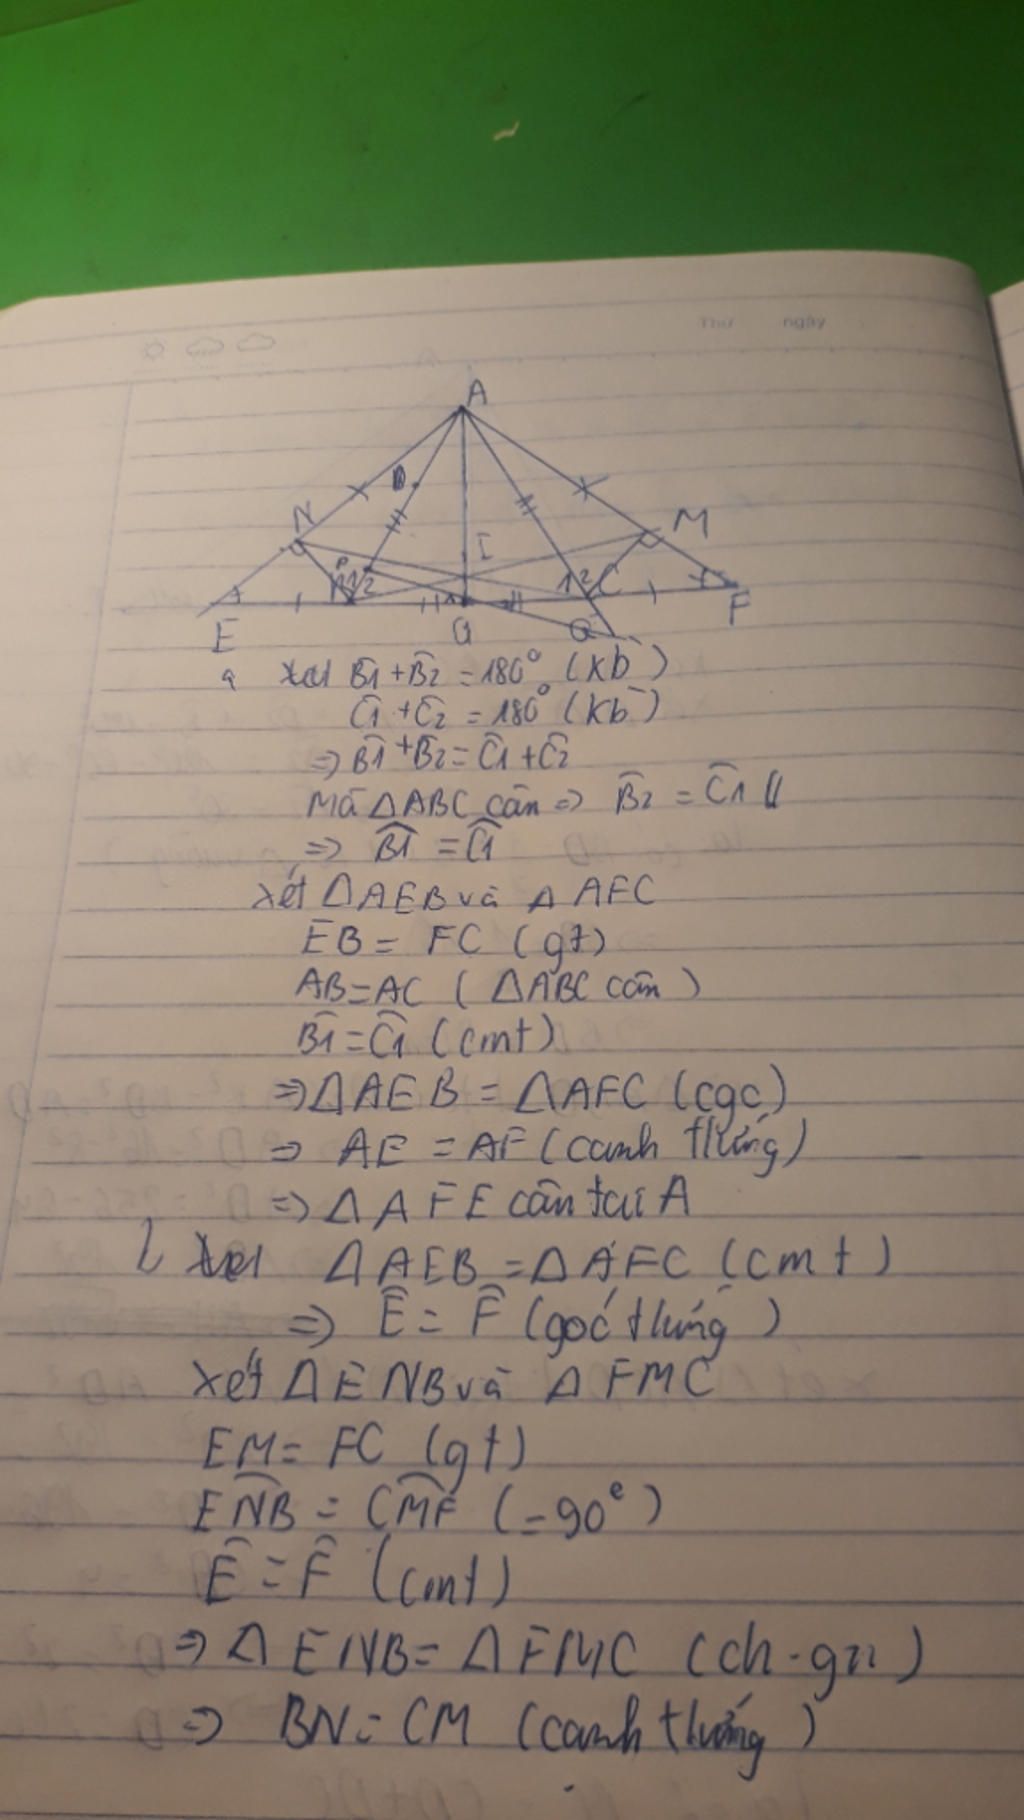 Thứ ngày
A
N
M
I
1 2
1 2 C
E
G
Q
F
a xét B̂1 + B̂2 = 180° (kb)
Ĉ1 + Ĉ2 = 180° (kb)
⇒ B̂1 + B̂2 = Ĉ1 + Ĉ2
Mã ΔABC cân ⇒ B̂2 = Ĉ1
⇒ B̂1 = Ĉ1
xét ΔAEB và Δ AFC
EB = FC (gt)
AB = AC ( ΔABC cân )
B̂1 = Ĉ1 (cmt)
⇒ ΔAEB = ΔAFC (cgc)
⇒ AE = AF (canh tứng)
⇒ Δ AFE cân tại A
b xét ΔAEB = ΔAFC (cmt)
⇒ Ê = F̂ (goć tứng )
xét ΔENB và Δ FMC
EM = FC (gt)
ENB = CMF (=90°)
Ê = F̂ (cmt)
⇒ Δ ENB = Δ FMC (ch-gn)
⇒ BN = CM (canh tứng )